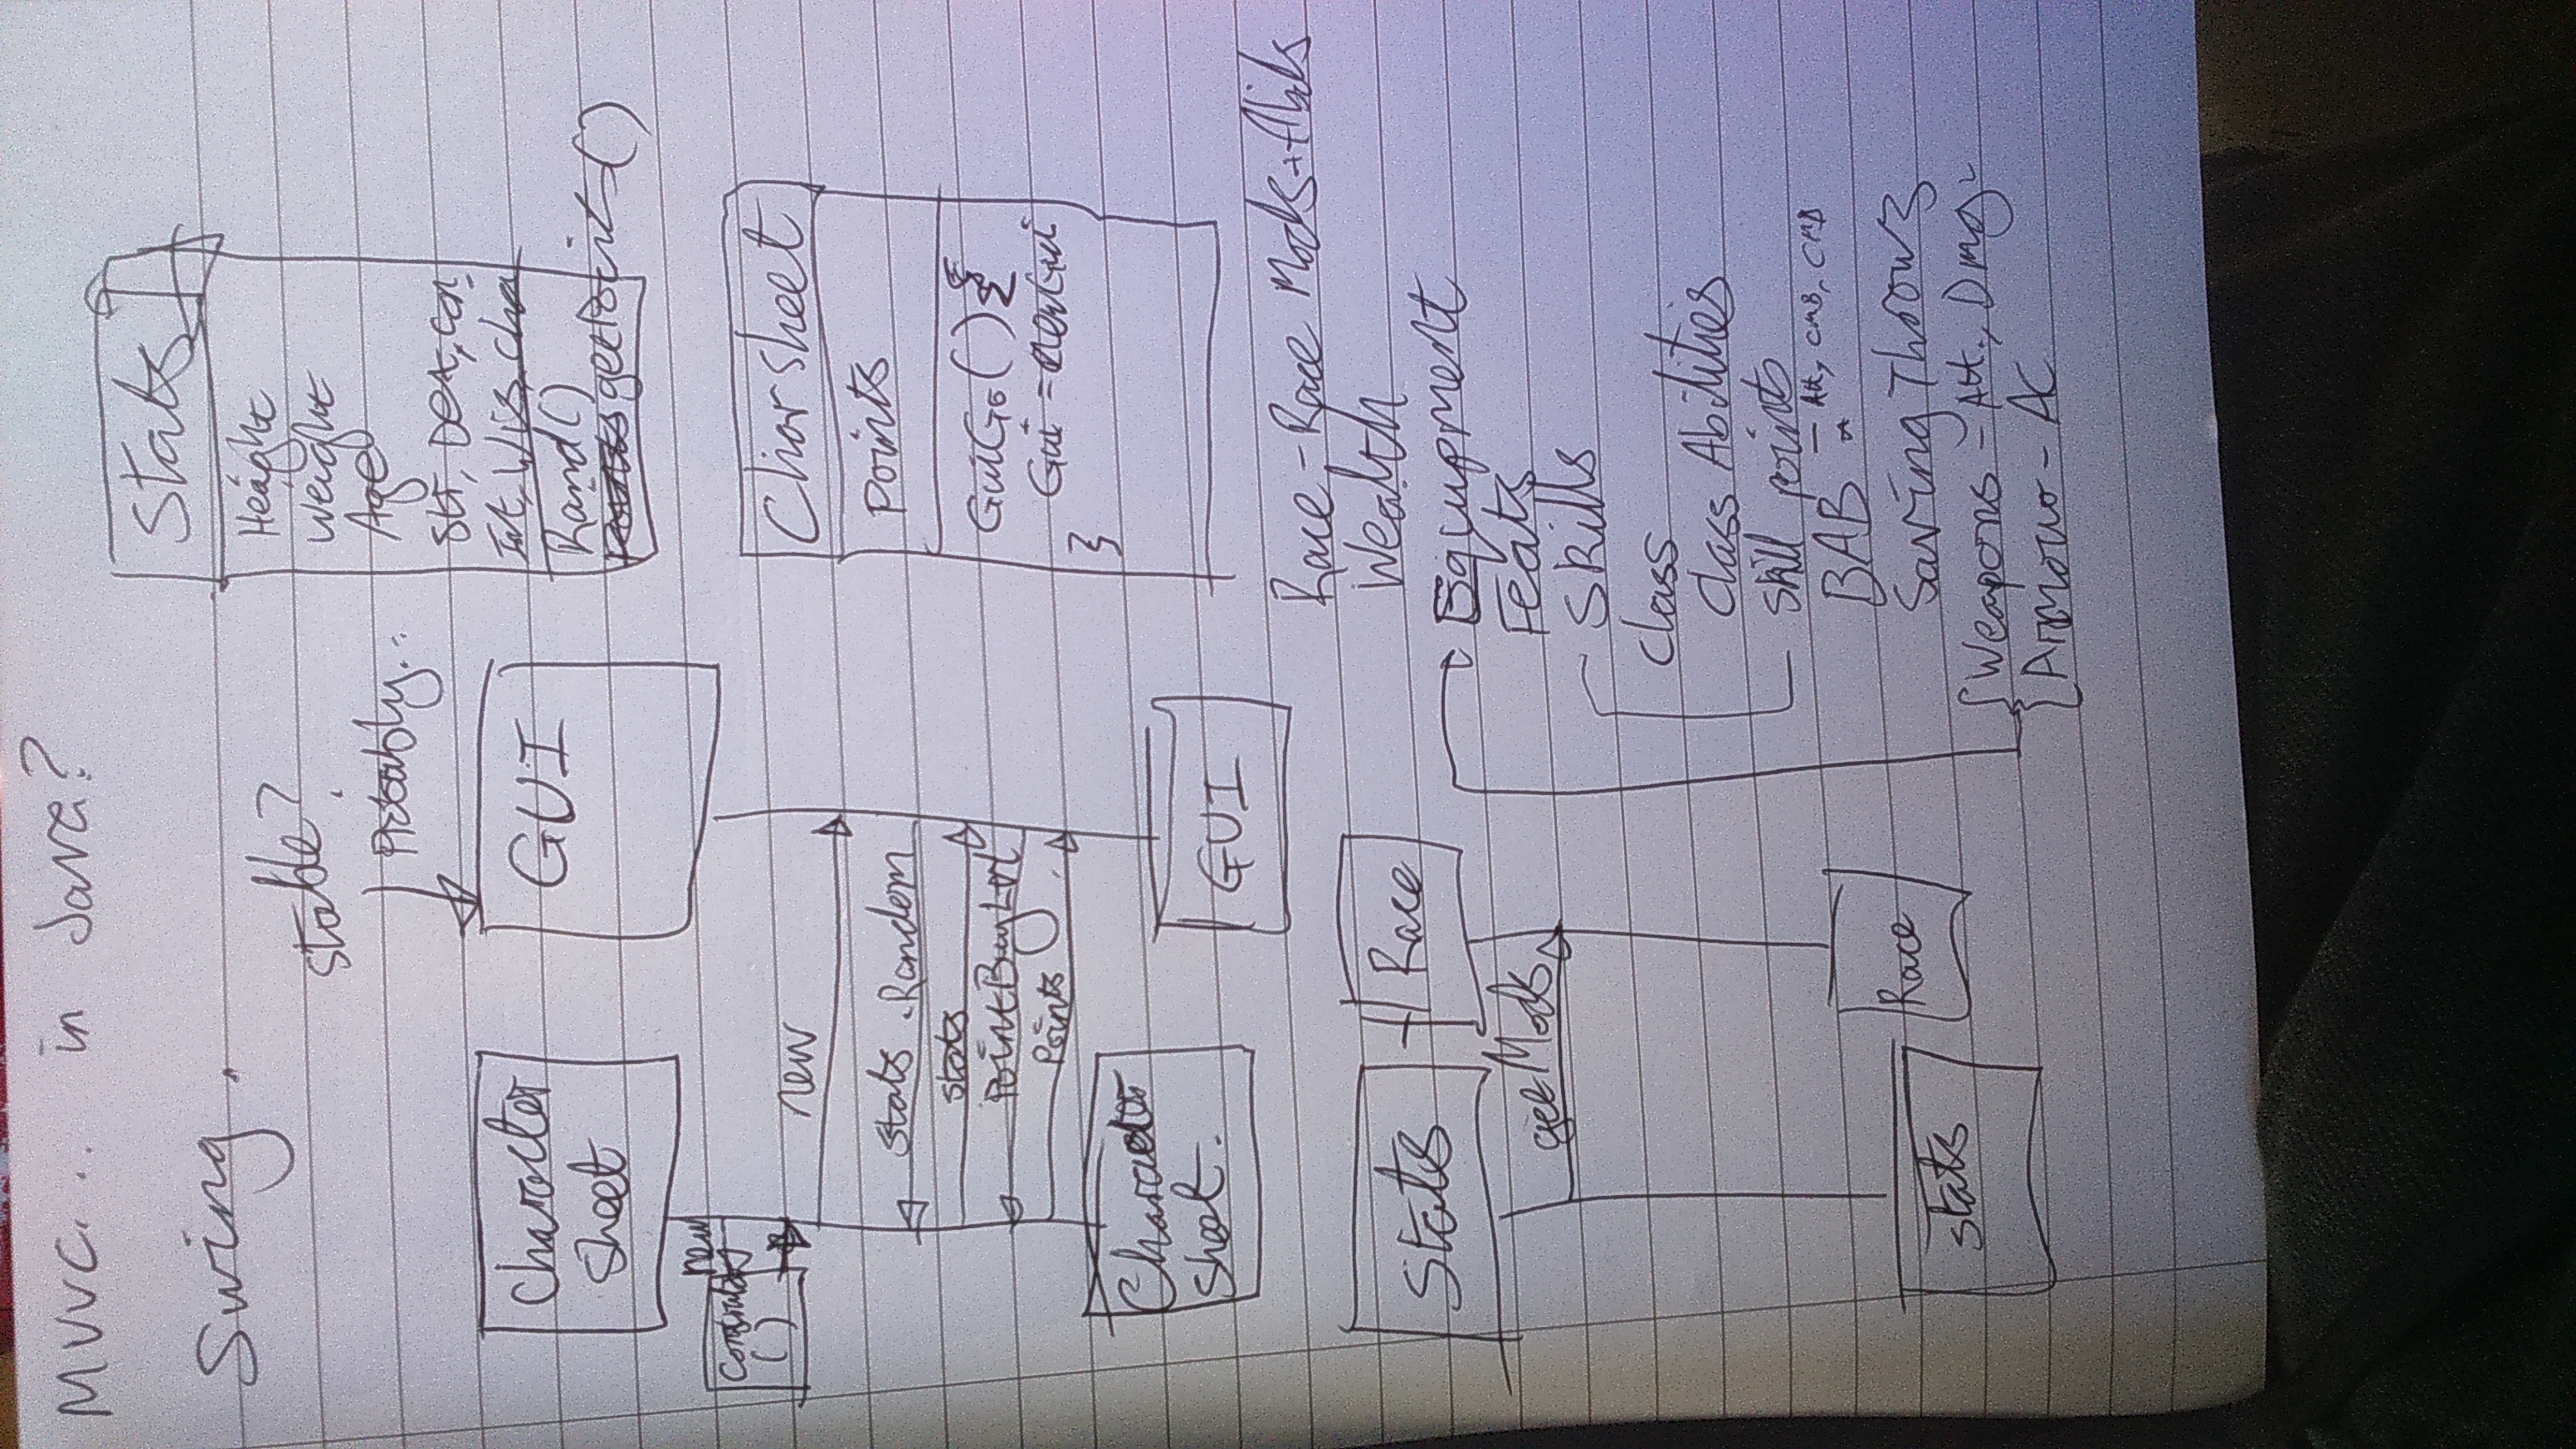 MVVC... in Java?
Swing.
Stable?
Probably..
Stats
Height
Weight
Age
Str, Dex, Con
Int, Wis, Cha
Rand()
getPoints()
Character
Sheet
GUI
new
()
new
Stats.Random
Stats
PointBuyLvl
Points
Character
Sheet.
GUI
Charsheet
Points
GuiGo(){
Gui = new Gui
}
Stats
Race
getMods
Stats
Race
Race - Race Mods + Abils
Wealth
Equipment
Feats
Skills
Class
Class Abilities
Skill points
BAB - Att, CMB, CMD
Saving Throws
Weapons - Att., Dmg.
Armour - AC